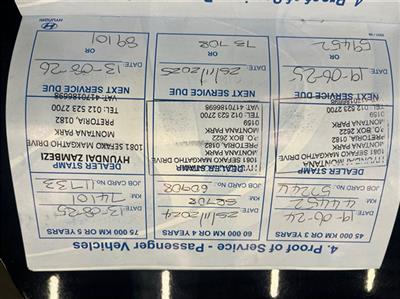 4. Proof of Service - Passenger Vehicles
45 000 KM OR 3 YEARS
DATE: 19-06-24
KM: 44452
JOB CARD NO:
DEALER STAMP
1081 SEFAKO MAKGATHO DRIVE
MONTANA PARK
PRETORIA 0182
P.O. BOX 2622
MONTANA PARK
0159
TEL: 012 523 2700
NEXT SERVICE DUE
DATE: 19-06-25
OR
59452
60 000 KM OR 4 YEARS
DATE: 25/11/2024
KM: 58708
JOB CARD NO: 6908
DEALER STAMP
1081 SEFAKO MAKGATHO DRIVE
MONTANA PARK
PRETORIA 0182
P.O. BOX 2622
MONTANA PARK
0159
TEL: 012 523 2700
NEXT SERVICE DUE
DATE: 25/11/2025
OR
73708
75 000 KM OR 5 YEARS
DATE: 13-08-25
KM: 74101
JOB CARD NO: 11733
DEALER STAMP
HYUNDAI ZAMBEZI
1081 SEFAKO MAKGATHO DRIVE
MONTANA PARK
PRETORIA, 0182
TEL: 012 523 2700
VAT: 4170186698
NEXT SERVICE DUE
DATE: 13-08-26
OR
89101
HYUNDAI